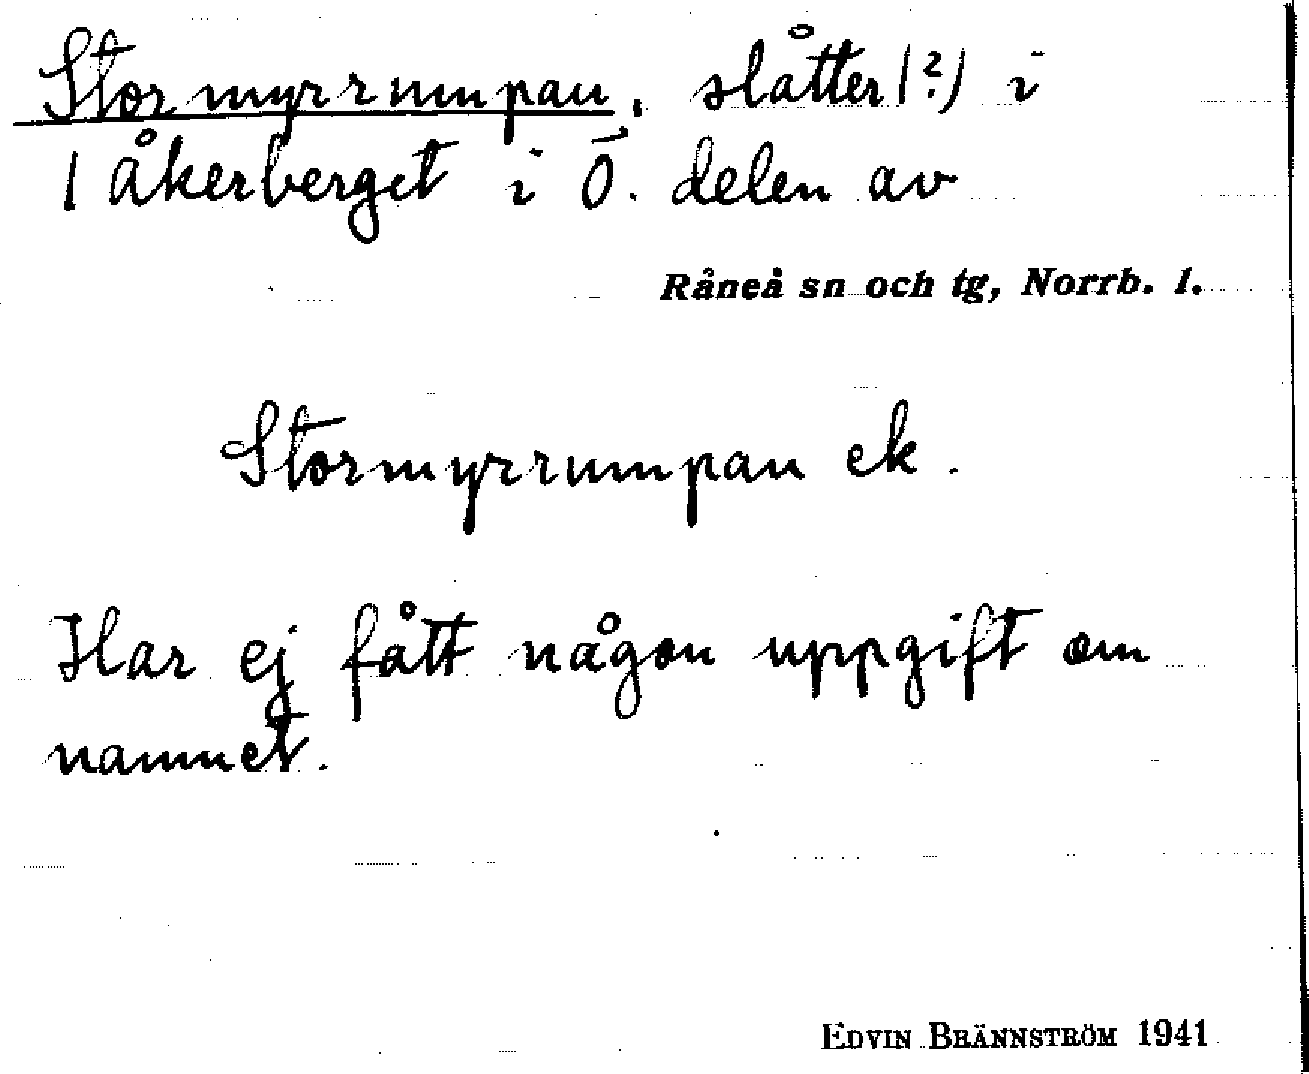 Stormyrrumpan, slåtter (?) i
1 Åkerberget i Ö. delen av
Råneå sn och tg, Norrb. l.
Stormyrrumpan ek.
Har ej fått någon uppgift om
namnet.
EDVIN BRÄNNSTRÖM 1941